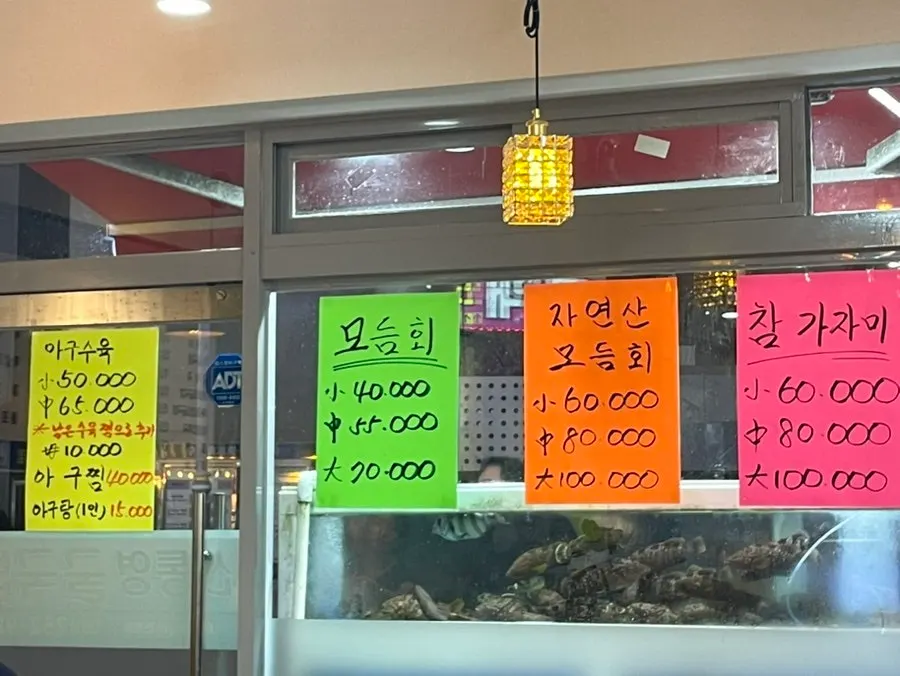 아구수육
小 50.000
中 65.000
※ 남은수육찜으로추가
₩ 10.000
아구찜 40.000
아구탕(1인) 15.000
ADT
모듬회
小 40.000
中 55.000
大 70.000
자연산
모듬회
小 60.000
中 80.000
大 100.000
참가자미
小 60.000
中 80.000
大 100.000